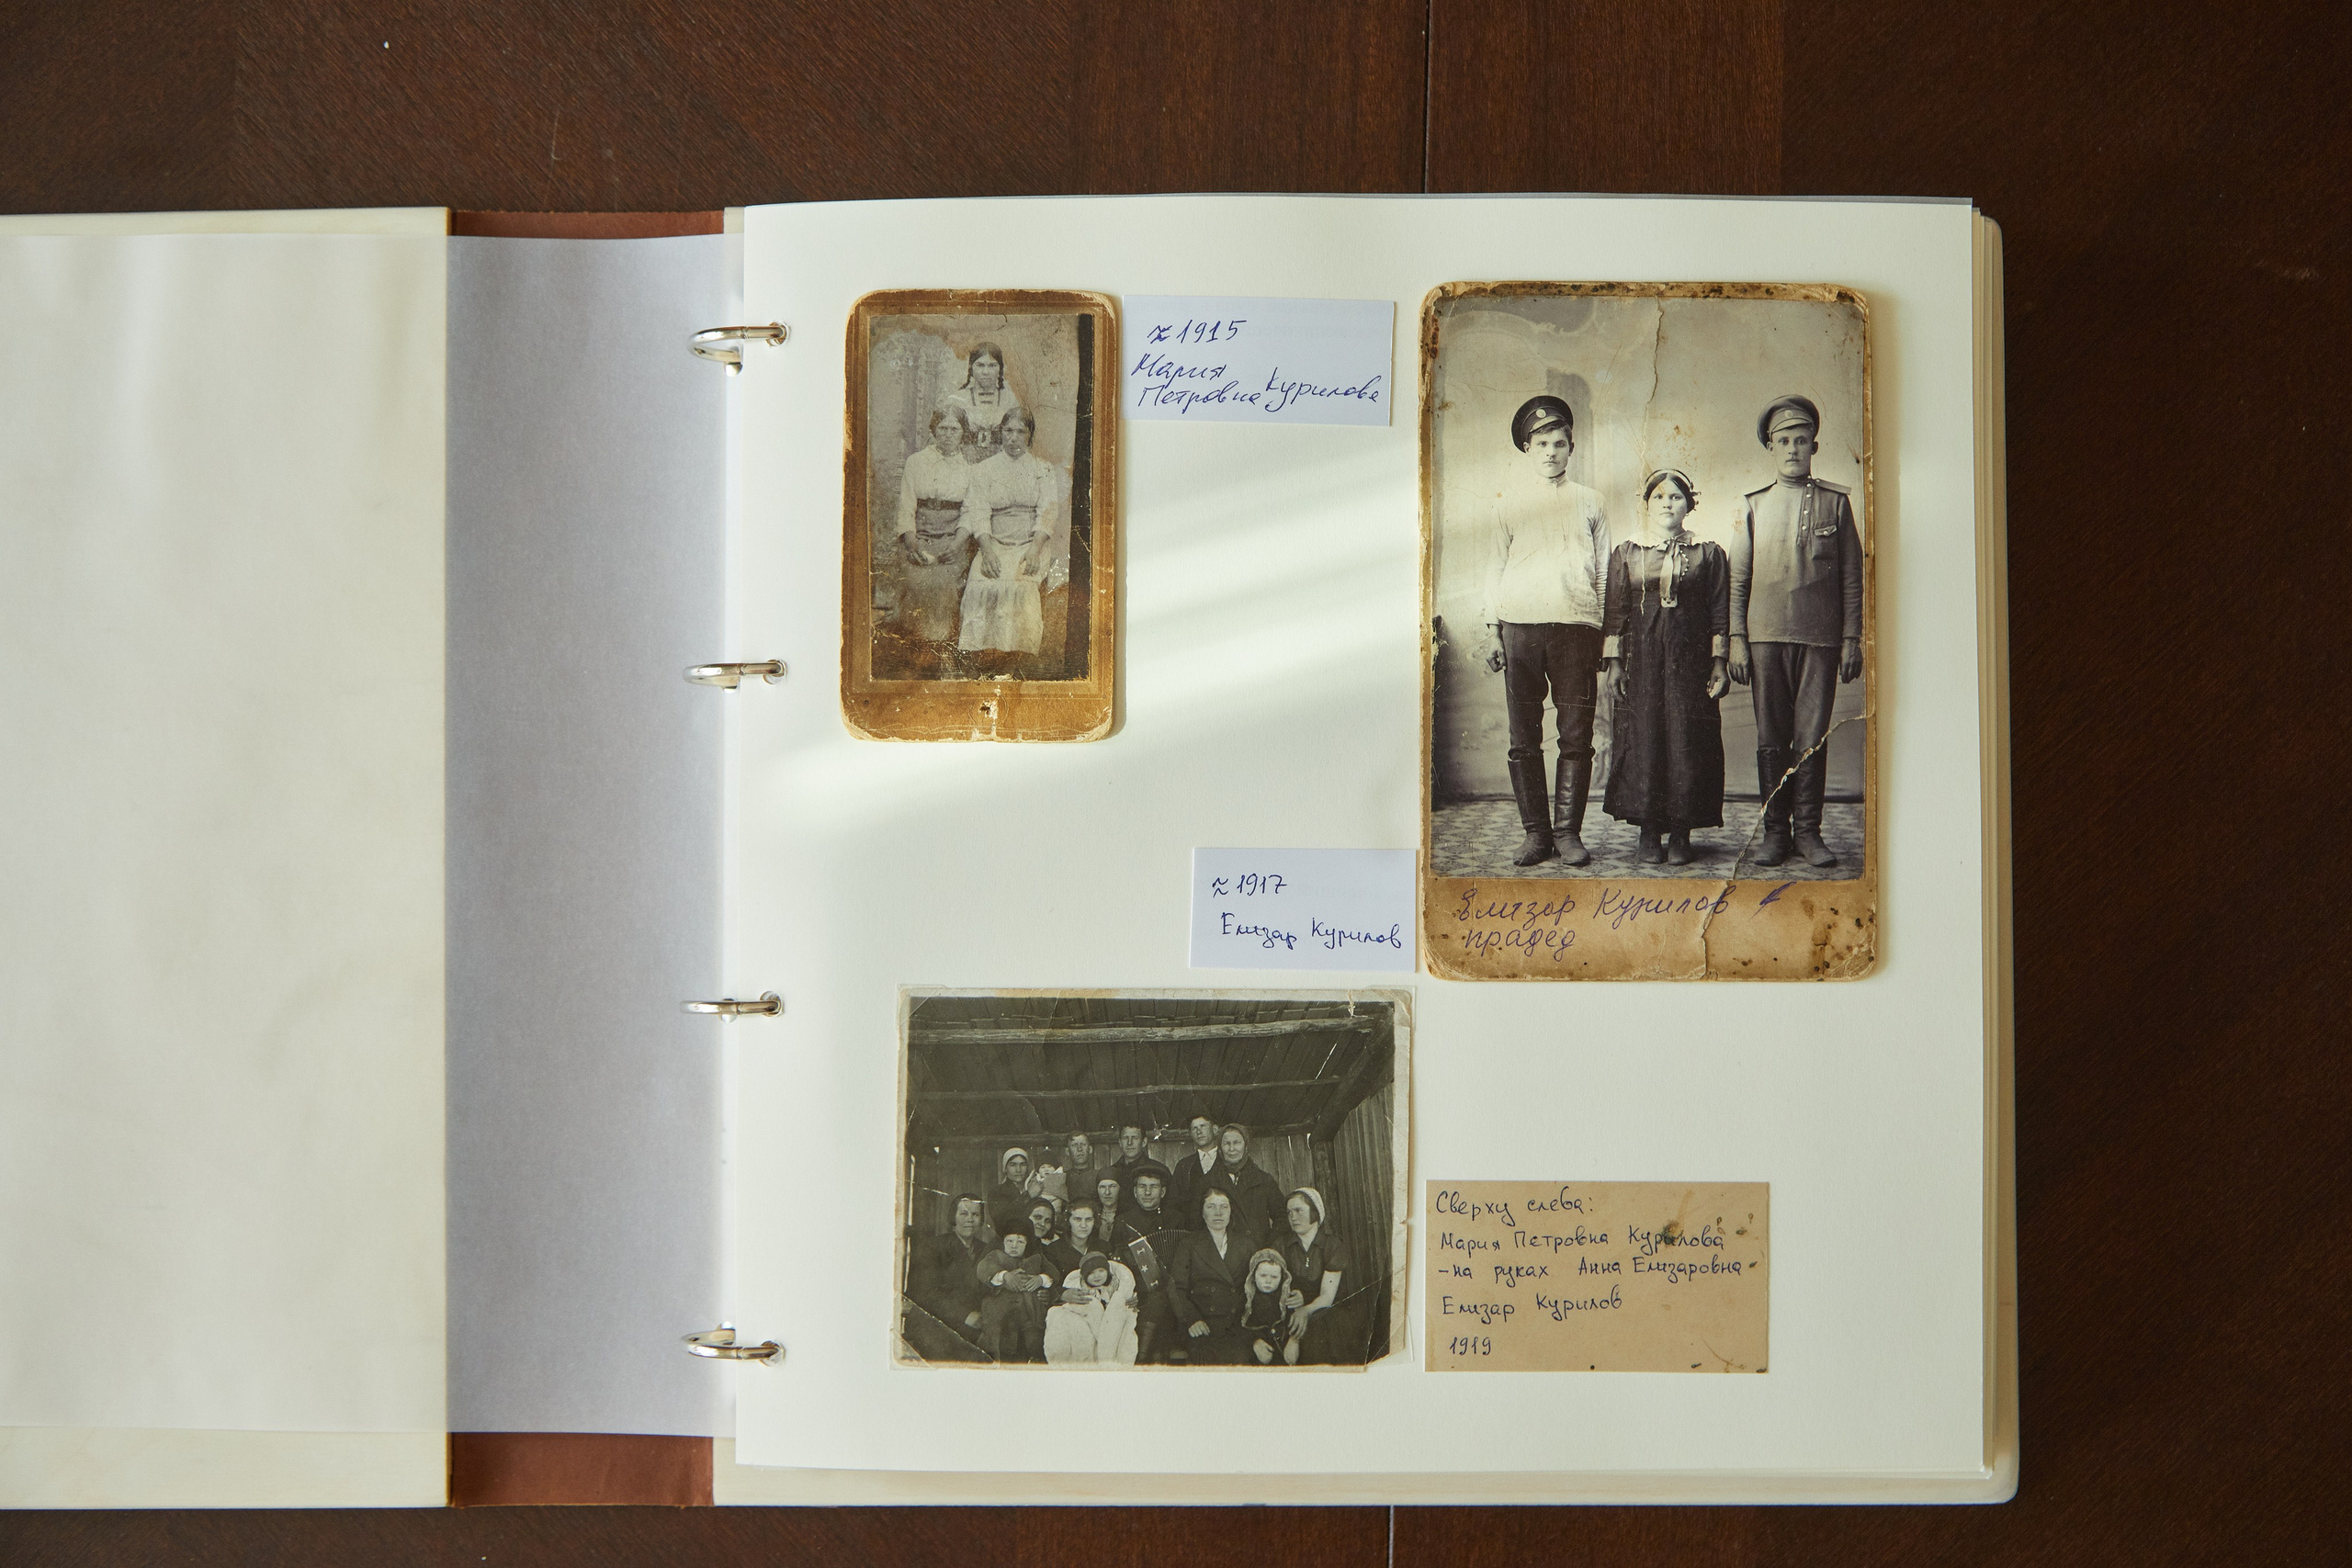 ≈ 1915
Мария
Петровна Курилова
≈ 1917
Елизар Курилов
Елизар Курилов
прадед
Сверху слева:
Мария Петровна Курилова
- на руках Анна Елизаровна
Елизар Курилов
1919